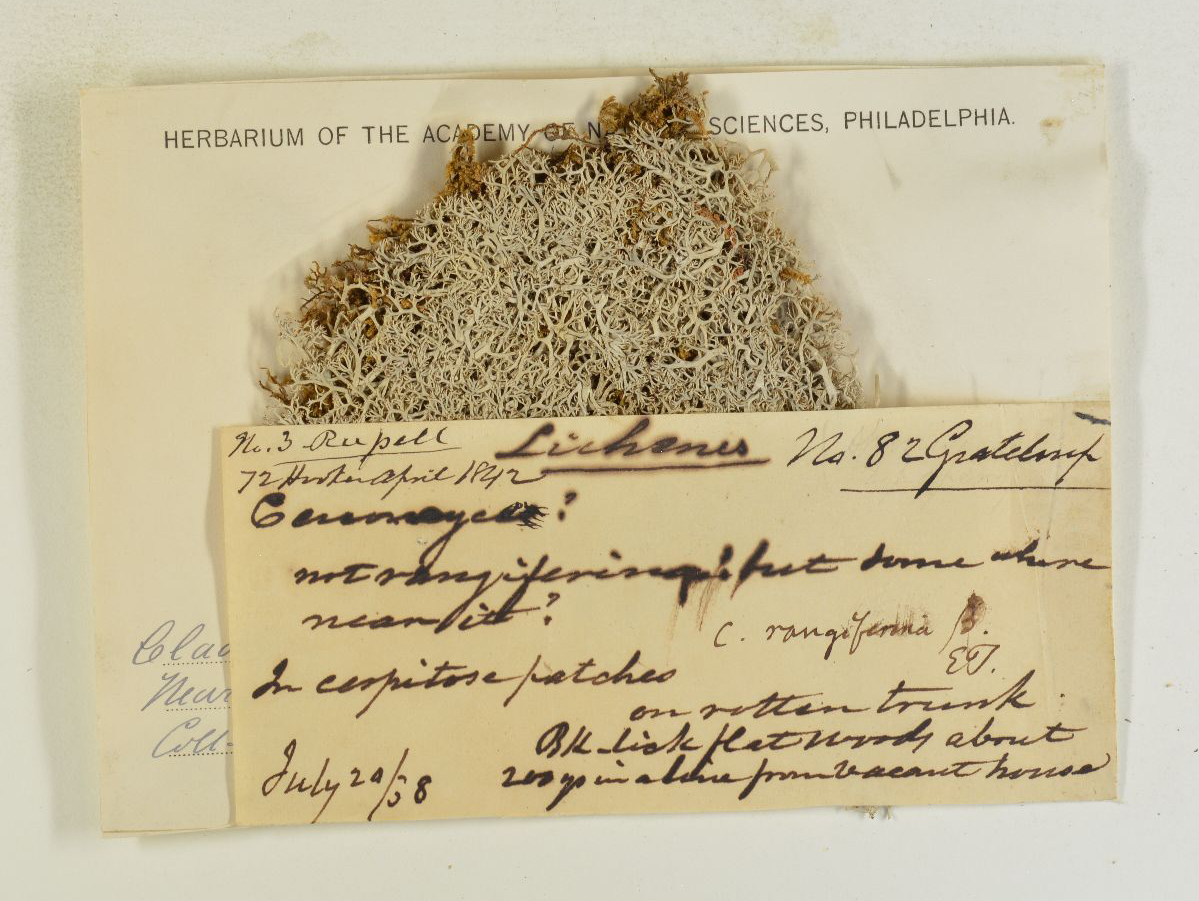 HERBARIUM OF THE ACADEMY OF N SCIENCES, PHILADELPHIA.
No. 3 Rupell Lichenes No. 82 Grateloup
72 Hooker April 1842
Cenomyce ?
not rangiferina! but some where
near it?
C. rangiferina β.
ET.
In cespitose patches
on rotten trunk
BK lick flat woods about
200 ys in a line from vacant house
July 20/38
Clad
Near
Coll-